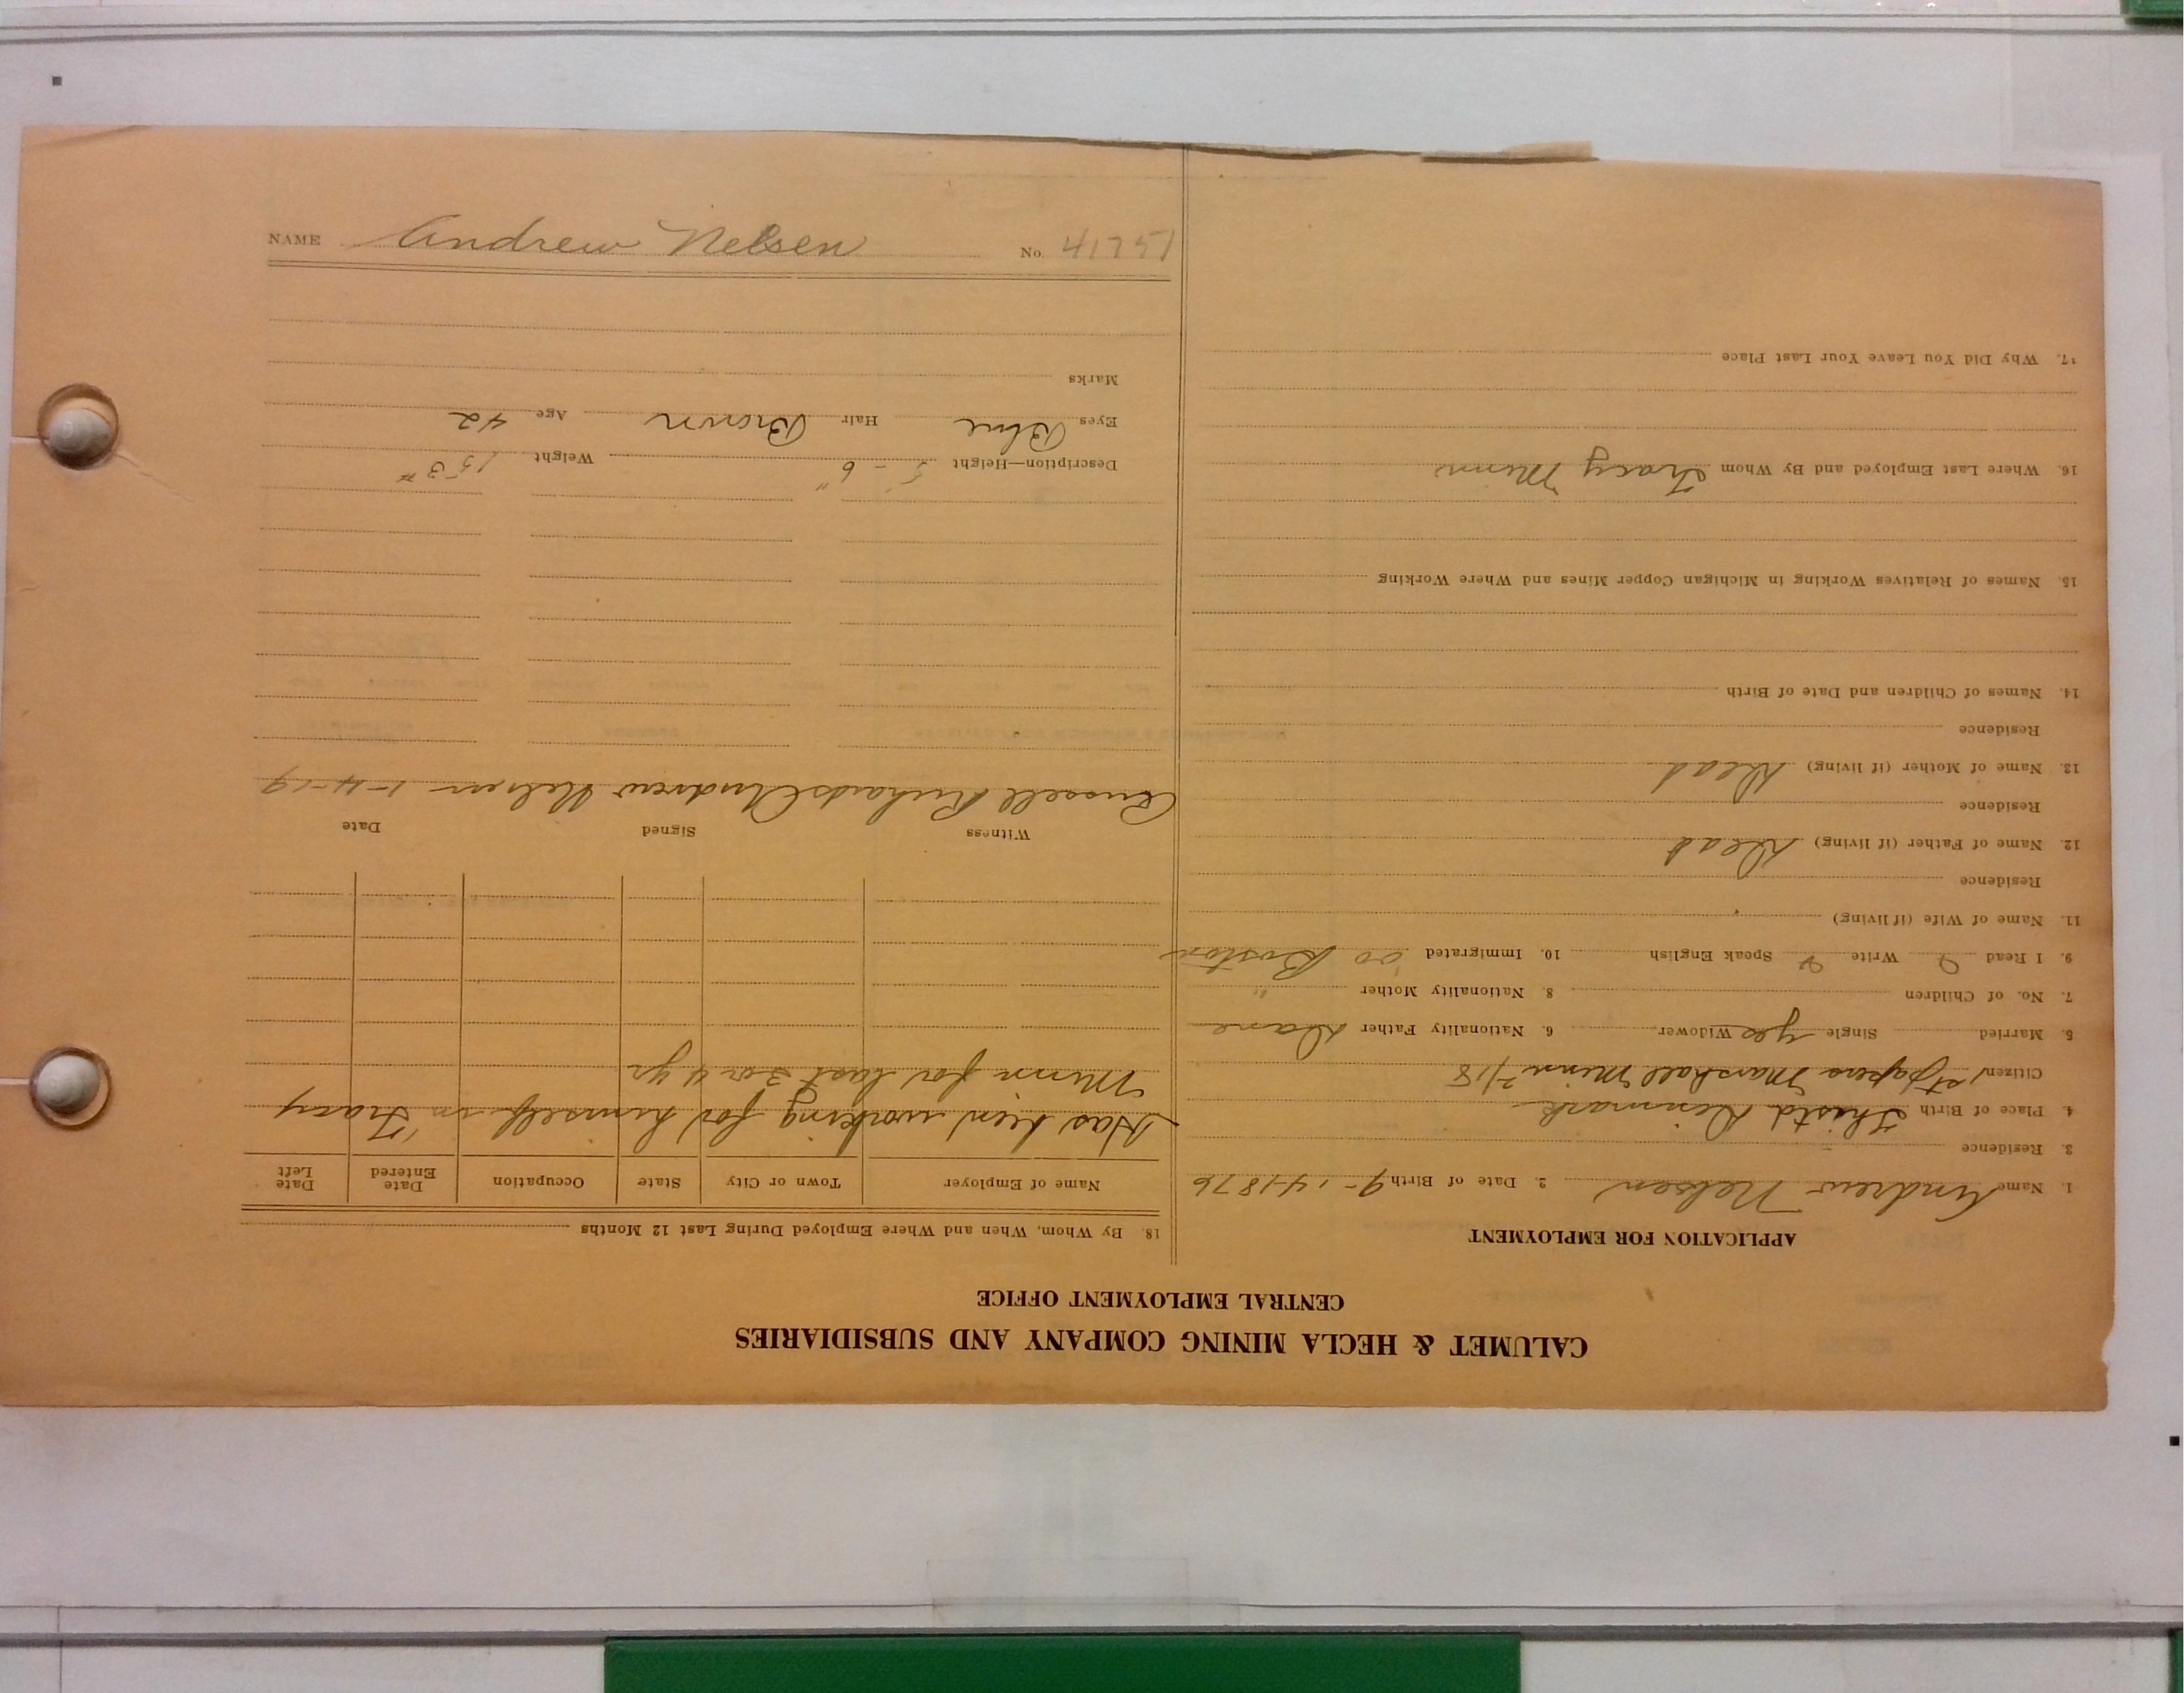 CALUMET & HECLA MINING COMPANY AND SUBSIDIARIES
CENTRAL EMPLOYMENT OFFICE
APPLICATION FOR EMPLOYMENT
1. Name Andrew Nelsen 2. Date of Birth 9-14-1876
3. Residence
4. Place of Birth Thisted Denmark
Citizen 1st papers Marshall Minn 2/18
5. Married Single yes Widower 6. Nationality Father Dane
7. No. of Children 8. Nationality Mother "
9. I Read Write Speak English 10. Immigrated 00 Boston
11. Name of Wife (if living)
Residence
12. Name of Father (if living) Dead
Residence
13. Name of Mother (if living) Dead
Residence
14. Names of Children and Date of Birth
15. Names of Relatives Working in Michigan Copper Mines and Where Working
16. Where Last Employed and By Whom Tracy Minn
17. Why Did You Leave Your Last Place
18. By Whom, When and Where Employed During Last 12 Months
Name of Employer Town or City State Occupation Date Entered Date Left
Has been working for himself in Tracy
Minn for last 3 or 4 yr
Witness Signed Date
Russell Richards Andrew Nelsen 1-4-19
Description—Height 5'-6" Weight 153#
Eyes Blue Hair Brown Age 42
Marks
NAME Andrew Nelsen No. 41751